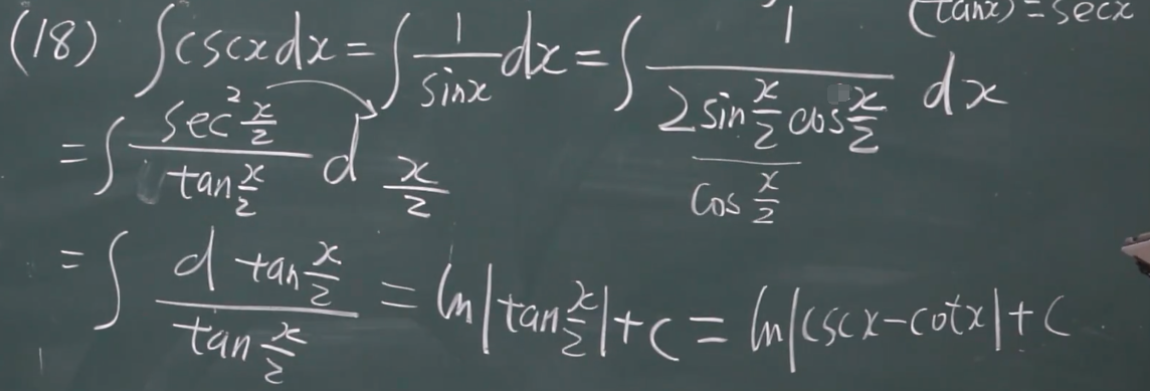 (18) ∫cscxdx = ∫ 1/sinx dx = ∫ 1/(2sin x/2 cos x/2) dx
(tanx) = secx
cos x/2
= ∫ sec² x/2 / tan x/2 d x/2
= ∫ d tan x/2 / tan x/2 = ln|tan x/2| + C = ln|cscx-cotx| + C